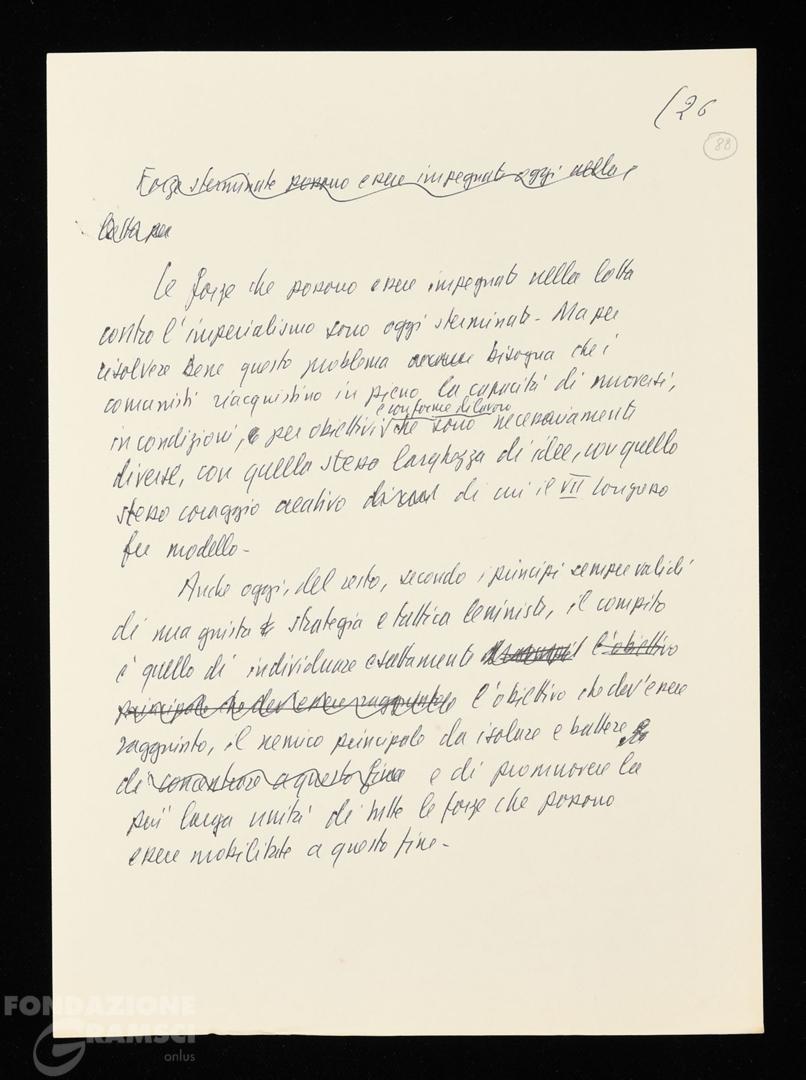 (26
88
Forze sterminate possono essere impegnate oggi nella
lotta per
Le forze che possono essere impegnate nella lotta
contro l'imperialismo sono oggi sterminate - Ma per
risolvere bene questo problema occorre bisogna che i
comunisti riacquistino in pieno la capacità di muoversi,
e con forme di lavoro
in condizioni, e per obiettivi che sono necessariamente
diverse, con quella stessa larghezza di idee, con quello
stesso coraggio creativo di cui il VII Congresso
fu modello -
Anche oggi, del resto, secondo i principi sempre validi
di una giusta strategia e tattica leniniste, il compito
è quello di individuare esattamente l'obiettivo
principale che dev'essere raggiunto l'obiettivo che dev'essere
raggiunto, il nemico principale da isolare e battere
di concentrare a questo fine e di promuovere la
più larga unità di tutte le forze che possono
essere mobilitate a questo fine -
FONDAZIONE
GRAMSCI
onlus